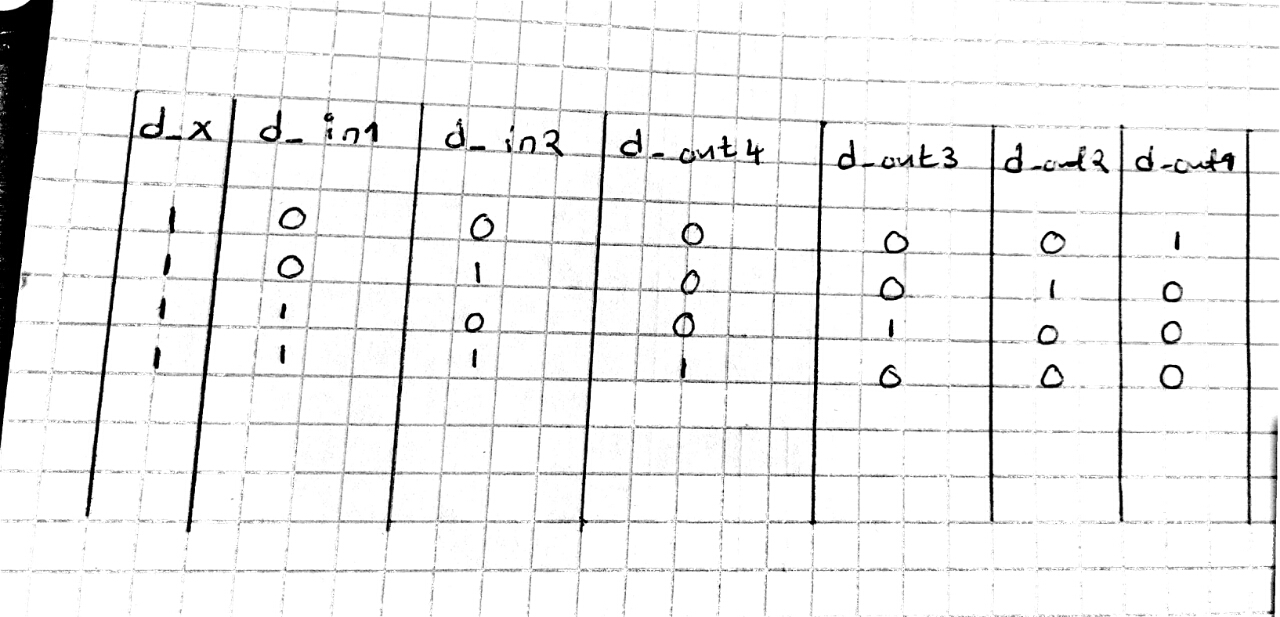 d_x d_in1 d_in2 d_out4 d_out3 d_out2 d_out1
1 0 0 0 0 0 1
1 0 1 0 0 1 0
1 1 0 0 1 0 0
1 1 1 1 0 0 0